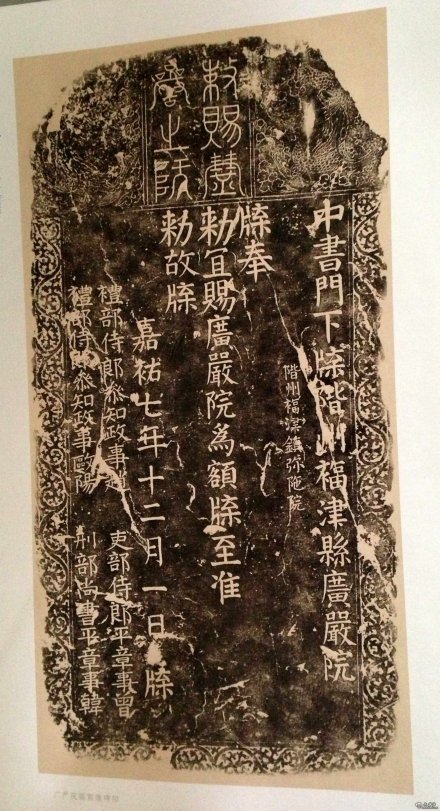 敕賜廣
嚴之院
中書門下牒階州福津縣廣嚴院
階州福津鎮弥陁院
牒奉
勑宜賜廣嚴院為額牒至准
勑故牒
嘉祐七年十二月一日牒
禮部侍郎叅知政事趙 吏部侍郎平章事曾
禮部侍郎叅知政事歐陽 刑部尚書平章事韓